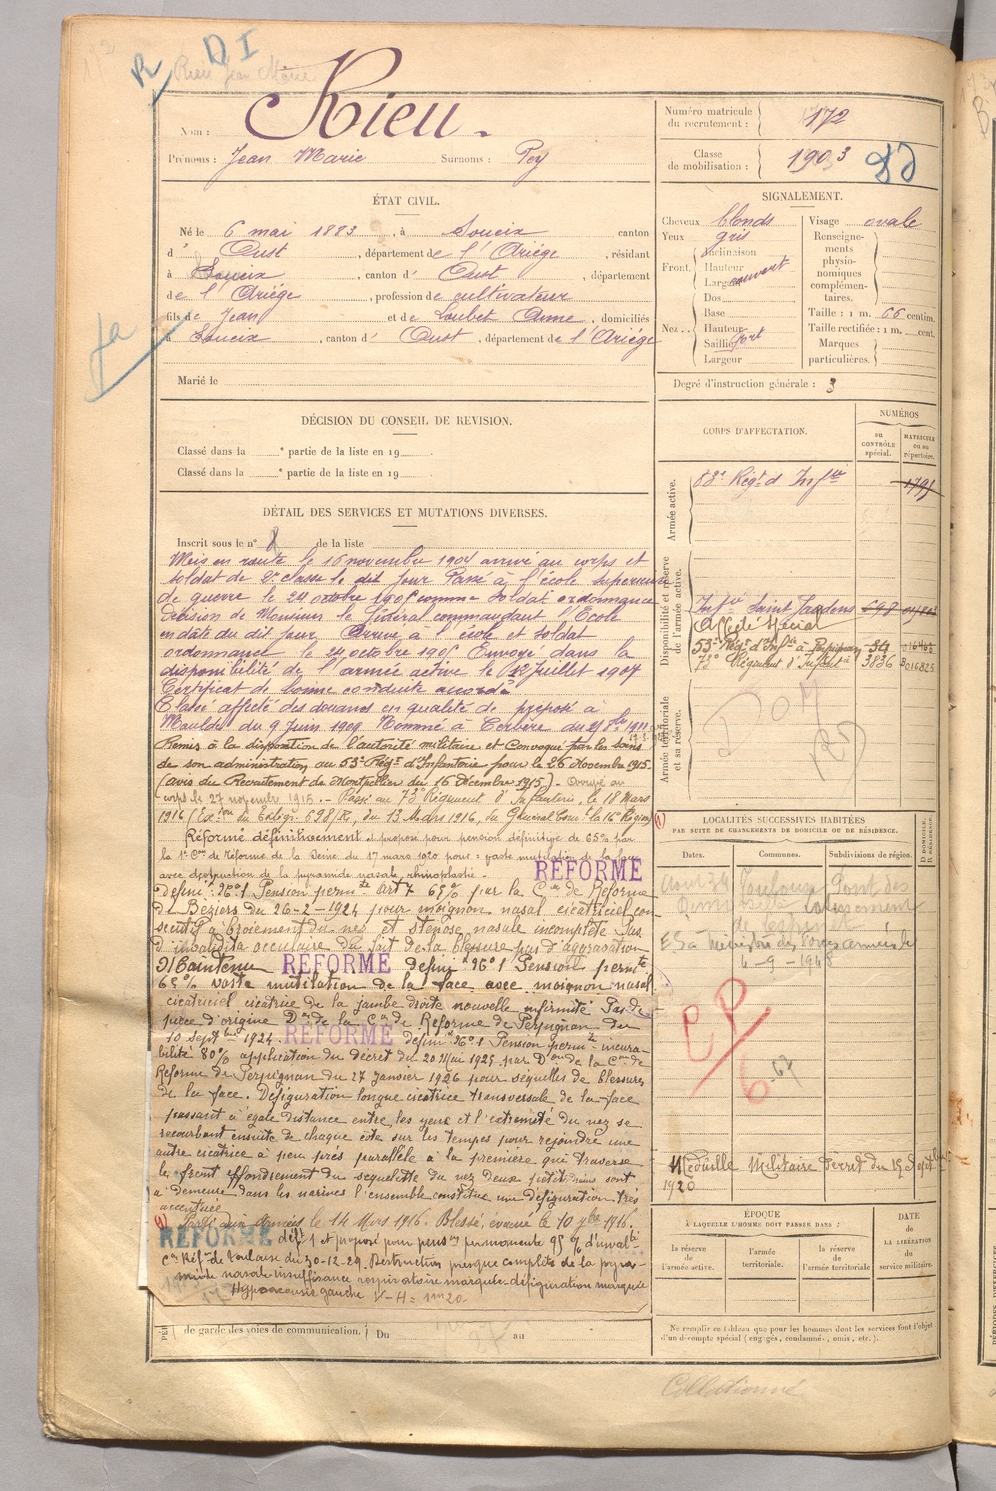 R DI
Rieu Jean Marie
Nom : Rieu.
Prénoms : Jean Marie Surnoms : Pey
Numéro matricule du recrutement : 172
Classe de mobilisation : 1903
ÉTAT CIVIL.
Né le 6 mai 1883, à Soueix canton
d' Oust, département de l'Ariége, résidant
à Soueix, canton d' Oust, département
de l'Ariége, profession de cultivateur
fils de Jean et de Loubet Anne, domiciliés
à Soueix, canton d' Oust, département de l'Ariége
Marié le
SIGNALEMENT.
Cheveux blonds
Yeux gris
Front. Inclinaison
Hauteur
Largeur couvert
Nez. Dos
Base
Hauteur
Saillie fort
Largeur
Visage ovale
Renseignements physionomiques complémentaires.
Taille : 1 m. 66 centim.
Taille rectifiée : 1 m. cent.
Marques particulières.
Degré d'instruction générale : 3
DÉCISION DU CONSEIL DE REVISION.
Classé dans la e partie de la liste en 19 .
Classé dans la e partie de la liste en 19 .
DÉTAIL DES SERVICES ET MUTATIONS DIVERSES.
Inscrit sous le n° 8 de la liste
Mis en route le 16 novembre 1904 arrivé au corps et
soldat de 2e classe le dit jour Passé à l'école supérieure
de guerre le 24 octobre 1905 comme soldat ordonnance
Décision de Monsieur le Général commandant l'Ecole
en date du dit jour Arrivé à l'école et soldat
ordonnance le 24 octobre 1905 Envoyé dans la
disponibilité de l'armée active le 12 Juillet 1907
Certificat de bonne conduite accordé
Classé affecté des douanes en qualité de préposé à
Maulde du 9 Juin 1909 Nommé à Cerbère au 1911
Remis à la disposition de l'autorité militaire et Convoqué par les soins
de son administration au 53e Régt d'Infanterie pour le 26 Novembre 1915
(avis du Recrutement de Montpellier du 16 Décembre 1915). Arrivé au
corps le 27 novembre 1915. - Passé au 73e Régiment d'Infanterie, le 18 Mars
1916 (Exon du Télég. 698/R, du 13 Mars 1916, du Général Comt la 16e Région)
Réformé définitivement et proposé pour pension définitive de 65% par
la 1e Con de Réforme de la Seine du 17 mars 1920 pour : vaste mutilation de la face
avec destruction de la pyramide nasale, rhinoplastie.
RÉFORMÉ
Définif N°1 Pension permte Art 7 65% par la Con de Réforme
de Béziers du 26-2-1924 pour moignon nasal cicatriciel con-
secutif à broiement du nez et sténose nasale incomplète Pas
d'invalidité occulaire du fait de la blessure pas d'aggravation
Maintenu RÉFORMÉ définif N°1 Pension permte
65% vaste mutilation de la face avec moignon nasal
cicatriciel cicatrice de la jambe droite nouvelle infirmité Pas de
pièce d'origine Don de la Con de Réforme de Perpignan du
10 Septbre 1924. RÉFORMÉ définif N°1 Pension permte incura-
bilité 80% application du décret du 20 Mai 1925 par Don de la Con de
Réforme de Perpignan du 27 Janvier 1926 pour séquelles de blessures
de la face. Défiguration longue cicatrice transversale de la face
passant à égale distance entre les yeux et l'extrémité du nez se
recourbant ensuite de chaque côté sur les tempes pour rejoindre une
autre cicatrice à peu près parallèle à la première qui traverse
le front effondrement du squelette du nez Deux petits drains sont
à demeure dans les narines l'ensemble constitue une défiguration très
accentuée
(1) Parti aux Armées le 14 Mars 1916. Blessé, évacué le 10 1916.
RÉFORMÉ déft 1 et proposé pour pension permanente 95% d'invalté
Con Réfe de Toulouse du 30-12-29. Destruction presque complète de la pyra-
mide nasale insuffisance respiratoire marquée défiguration marquée
Hypoacousie gauche V-H = 1m20.
de garde des voies de communication. Du au
CORPS D'AFFECTATION.
NUMÉROS
DU CONTRÔLE spécial.
MATRICULE ou au répertoire.
Armée active.
Régt d'Infie 1791
Disponibilité et réserve de l'armée active.
Infie Saint Gaudens 698
Affecté Spécial
53e Régt d'Infie à Perpignan 34
73e Régiment d'Infanie 3836 016825
Armée territoriale et sa réserve.
(1) LOCALITÉS SUCCESSIVES HABITÉES
PAR SUITE DE CHANGEMENTS DE DOMICILE OU DE RÉSIDENCE.
Dates. Communes. Subdivisions de région. D DOMICILE. R RÉSIDENCE.
Toulouse Pont des
4-9-1948
CP
6-67
Médaille Militaire Décret du 15 Septembre
1920
ÉPOQUE
À LAQUELLE L'HOMME DOIT PASSER DANS :
la réserve de l'armée active.
l'armée territoriale.
la réserve de l'armée territoriale
DATE de LA LIBÉRATION du service militaire.
Ne remplir ce tableau que pour les hommes dont les services font l'objet
d'un décompte spécial (engagés, condamnés, omis, etc.).
Collationné